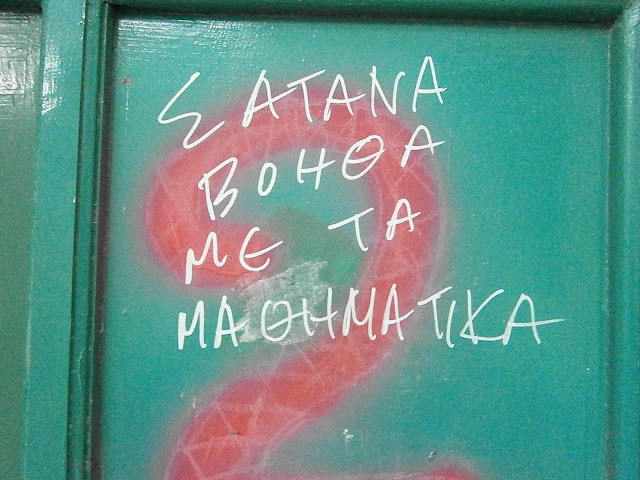 ΣΑΤΑΝΑ
ΒΟΗΘΑ
ΜΕ ΤΑ
ΜΑΘΗΜΑΤΙΚΑ
2